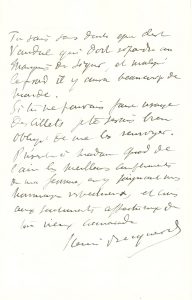 Tu sais sans doute que c'est
Vandal qui doit répondre au
Marquis de Ségur, et malgré
le froid il y aura beaucoup de
monde.
Si tu ne pouvais faire usage
des billets, je te serais bien
obligé de me les renvoyer.
Présente à madame
l'ami les meilleurs compliments
de ma femme, en y joignant mes
hommages respectueux, et crois
aux sentiments affectueux de
ton vieux camarade
Henri Becquerel